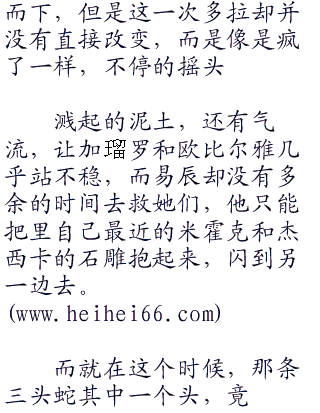 而下，但是这一次多拉却并
没有直接改变，而是像是疯
了一样，不停的摇头
溅起的泥土，还有气
流，让加瑠罗和欧比尔雅几
乎站不稳，而易辰却没有多
余的时间去救她们，他只能
把里自己最近的米霍克和杰
西卡的石雕抱起来，闪到另
一边去。
(www.heihei66.com)
而就在这个时候，那条
三头蛇其中一个头，竟